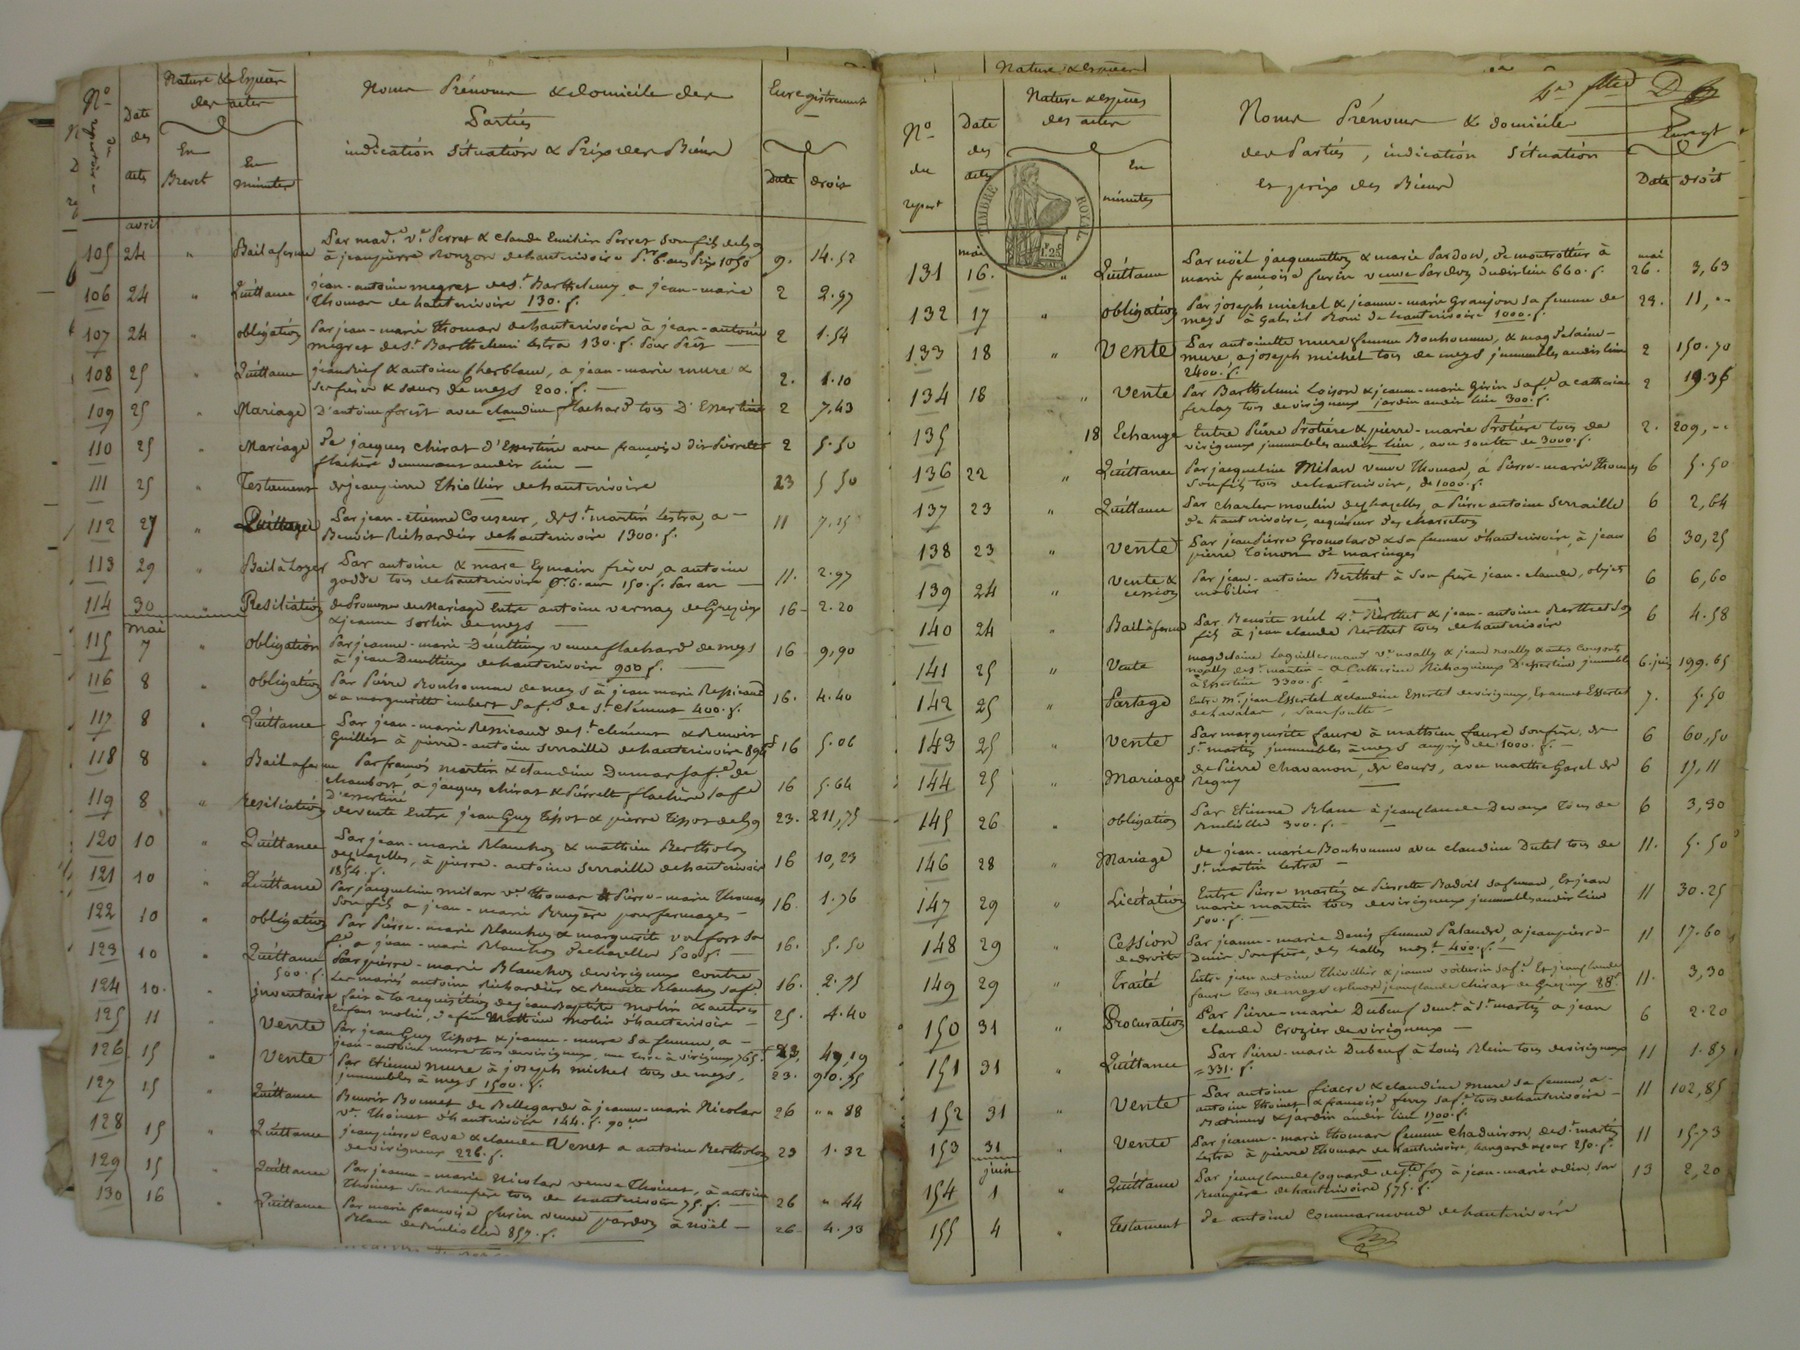 No du repertoire
Date des acts
Nature & Espèces des actes
En Brevet
En minutes
Noms Prénoms & domicile des
Parties
indication situation & Prix des Biens
Enregistrement
Date droit
avril
105 24 " Bail a ferme Par mad.e v.e Perret & claude Emilien Perret son fils de
à jeanpierre Ronzon de hauterivoire Pr 6. ans Prix 1050 9. 14.52
106 24 " Quittance jean-antoine megret de St. Barthelemy a jean-marie
Thomas de hauterivoire 130. f. 2 2.97
107 24 " obligation Par jean-marie Thomas de hauterivoire à jean-antoine
megret de St. Barthelemi lestra 130. f. Pour Prêt 2 1.54
108 25 " Quittance & antoine cherblanc, a jean-marie mure &
ses frère & sœurs de meys 200. f. 2. 1.10
109 25 " Mariage D'antoine forêt avec claudine flachard tous D'Essertines 2 7,43
110 25 " Mariage de jacques chirat d'Essertine avec françoise dit Pierrette
flachère demeurant audit lieu 2 5.50
111 25 " Testament de jeanpierre Thiollier de hauterivoire 23 5 50
112 27 " Quittance Par jean-etienne Couzeur, de St. martin Lestra, a
Benoit Richardier de hauterivoire 1300. f. 11 7.15
113 29 " Bail à Loyer Par antoine & marc Eymain frères, a antoine
godde tous de hauterivoire Pr. 6. ans 150. f. Par an 11. 2.97
114 30 " Resiliation de Promesse de Mariage Entre antoine vernay de Grezieux
& jeanne sorlin de meys 16 2.20
mai
115 7 " obligation Par jeanne-marie veuve flachard de meys
à jean de hauterivoire 900 f. 16 9,90
116 8 " obligation Par Pierre Bonhomme de meys à jean marie Ressicaud
& a marguerite imbert Sa f.e de St. clément 400. f. 16. 4.40
117 8 " Quittance Par jean-marie Ressicaud de St. clément & Benoit
Guillet à pierre-antoine serraille de hauterivoire 896 f 16 5.06
118 8 " Bail a ferme Par françois martin & claudine Dumas sa f.e de
chambost, à jacques chirat & Pierrette flachère sa f.e
D'essertine 16 5.64
119 8 " resiliation de vente Entre jean Guy Tissot & pierre Tissot de 23. 211,75
120 10 " Quittance Par jean-marie Blanchon & mathieu Bertholon
des hazelles, à pierre-antoine serraille de hauterivoire
1854. f. 16 10,23
121 10 " Quittance Par jacqueline milan v.e Thomas & Pierre-marie Thomas
son fils a jean-marie Bruyère pour fermages 16. 1.76
122 10 " obligation Par Pierre-marie Blanchon & marguerite vonfort sa
f.e a jean-marie Blanchon d'echazelles 500 f. 16. 5.50
123 10 " Quittance Par pierre-marie Blanchon de virigneux contre
500. f. Les mariés antoine Richardier & Benoite Blanchon sa f.e 16. 2.75
124 10. " inventaire fait à la requisition de jean Baptiste molin & autres
Enfans molin, de feu mathieu molin d'hauterivoire 25. 4.40
125 11 " Vente Par jean Guy Tissot & jeanne-mure sa femme, a
jean-antoine mure tous de virigneux, une terre à virigneux, 765. f 23, 49,19
126. 15 " Vente Par Etienne mure à joseph michel tous de meys,
immeubles à meys 1500. f. 23. 90.75
127 15 " Quittance Benoit Bonnet de Bellegarde à jeanne-marie Nicolas
v.e Thoinet d'hauterivoire 144. f. 90 c. 26 "" 88
128 15 " Quittance jeanpierre Cave & claude Venet a antoine Bertholon
de virigneux 226. f. 23 1.32
129 15 " Quittance Par jeanne-marie Nicolas veuve Thoinet, à antoine
Thoinet son Beaufrère tous de hauterivoire 75. f. 26 " 44
130 16 " Quittance Par marie françoise furin veuve pardon à noël
Blanc de 857. f. 26 4.73
Nature & espèces
No du repert
Date des actes
Nature & espèces des actes
En minutes
Noms Prénoms & domicile
des Parties, indication situation
et prix des Biens
Enregt
Date droit
TIMBRE ROYAL
1F.25
mai mai
131 16. " Quittance Par noël jacquemetton & marie Pardon, de montrottier à
marie françoise furin veuve Pardon dudit lieu 660. f. 26. 3,63
132 17 " obligation Par joseph michel & jeanne-marie Granjon sa femme de
meys à Gabriel Roni de hauterivoire 1000. f. 23. 11,--
133 18 " Vente Par antoinette mure femme Bonhomme, & magdelaine
mure, a joseph michel tous de meys immeubles audit lieu
2400. f. 2 150.70
134 18 " Vente Par Barthelemi Loison & jeanne-marie Girin sa f.e a catherine
ferlay tous de virigneux jardin audit lieu 300. f. 2 19.36
135 18 Echange Entre Pierre Protière & pierre-marie Protière tous de
virigneux immeubles audit lieu, avec soulte de 3000. f. 2. 209,--
136 22 " Quittance Par jacqueline Milan veuve Thomas, à Pierre-marie Thomas
son fils tous de hauterivoire, de 1000. f. 6 5.50
137 23 " Quittance Par Charles moulin des hazelles, a Pierre antoine Serraille
de hauterivoire, acquéreur des charreton 6 2,64
138 23 " Vente Par jeanpierre Gromolard & sa femme d'hauterivoire, à jean
pierre Coinon de maringes 6 30,25
139 24 " Vente & cession Par jean-antoine Berthet à Son frère jean-claude, objet
mobilier 6 6,60
140 24 " Bail a ferme Par Benoite niel v.e Berthet & jean-antoine Berthet son
fils à jean claude Berthet tous de hauterivoire 6 4.58
141 25 " Vente magdelaine Laguillermand v.e noally & jean noally & autres Consorts
noally de St. martin a Catherine Richagneux D'Essertine immeuble
à Essertine 3300. f. 6. juin 199.65
142 25 " Partage Entre Mr. jean Essertel & claudine Essertel de virigneux, Et annet Essertel
de Lavalas, Sans soulte 7. 5.50
143 25 " Vente Par marguerite faure à mathieu faure son frère, de
St. martin, immeubles à meys au prix de 1000. f. 6 60,50
144 25 " Mariage de Pierre Chavanon, de Cours, avec marthe Garel de
Regny 6 17,11
145 26 " obligation Par Etienne Blanc à jeanclaude Devaux tous de
300. f. 6 3,30
146 28 " Mariage de jean-marie Bonhomme avec claudine Dutel tous de
St. martin lestra 11. 5.50
147 29 " Licitation Entre Pierre martin & Pierrette Badoil sa femme, Et jean
marie martin tous de virigneux immeubles audit lieu
500. f. 11 30.25
148 29 " Cession de droits Par jeanne-marie Denis femme Palandre, a jeanpierre
Denis son frère, des halles, moy.t 400. f. 11 17.60
149 29 " Traité Entre jean antoine Thivillier & jeanne voiturin sa f.e Et jeanclaude
faure tous de meys jeanclaude chirat de Grezieux 88. f 11. 3,30
150 31 " Procuration Par Pierre-marie Dubeuf dem.t à St. martin a jean
claude Crozier de virigneux 6 2.20
151 31 " Quittance Par Pierre-marie Dubeuf à Louis Blein tous de virigneux
= 331. f. 11 1.87
152 31 " Vente Par antoine fiacre & claudine mure sa femme, a
antoine Thoinet & françoise ferry sa f.e tous de hauterivoire
Batimens & jardin audit lieu 1700. f. 11 102,85
153 31 " Vente Par jeanne-marie Thomas femme Chadviron, de St. martin
Lestra à pierre Thomas de hauterivoire, hangard & cour 250. f. 11 15.73
juin
154 1 " Quittance Par jeanclaude Cognard de Ste. foy à jean-marie odin son
Beaupère de hauterivoire 575. f. 13 2,20
155 4 " Testament de antoine Commarmond de hauterivoire